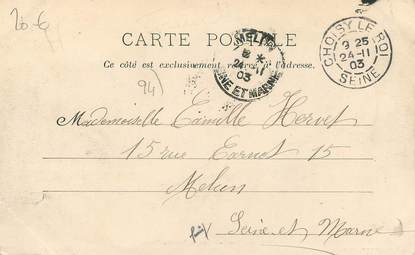 20-6
CARTE POSTALE
Ce côté est exclusivement réservé à l'adresse.
MELUN
8
24-11
03
SEINE ET MARNE
CHOISY LE ROI
9 25
24-11
03
SEINE
94)
Mademoiselle Camille Hervet
15 rue Carnot 15
Melun
Seine et Marne